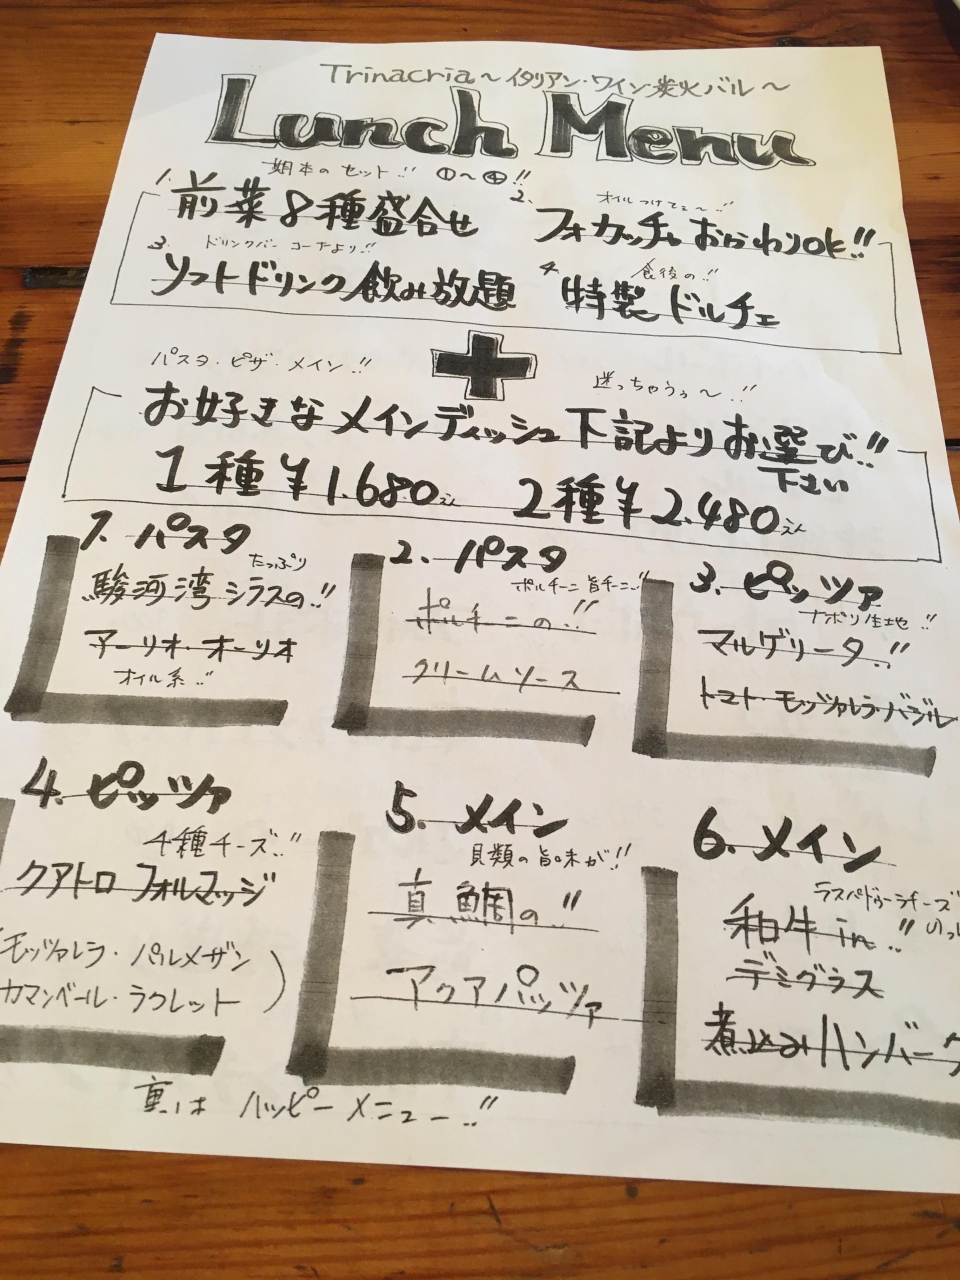 Trinacria～イタリアン・ワイン炭火バル～
Lunch Menu
基本のセット!! ①～④!!
1. 前菜8種盛合せ
2. オイルつけてぇ～!!
フォカッチャおかわりok!!
3. ドリンクバーコーナーより!!
ソフトドリンク飲み放題
4 食後の!!
特製ドルチェ
+
パスタ・ピザ・メイン!!
迷っちゃうぅ～!!
お好きなメインディッシュ下記よりお選び!!
下さい
1種¥1.680えん 2種¥2.480えん
1. パスタ
たっぷり
駿河湾シラスの!!
アーリオ・オーリオ
オイル系!!
2. パスタ
ポルチーニ旨チーニ!!
ポルチーニの!!
クリームソース
3. ピッツァ
ナポリ生地!!
マルゲリータ!!
トマト・モッツァレラ・バジル
4. ピッツァ
4種チーズ!!
クアトロフォルマッジ
(モッツァレラ・パルメザン
カマンベール・ラクレット)
5. メイン
貝類の旨味が!!
真鯛の!!
アクアパッツァ
6. メイン
ラスパドゥーラチーズ
和牛in!!
デミグラス
煮込みハンバーグ
裏はハッピーメニュー!!